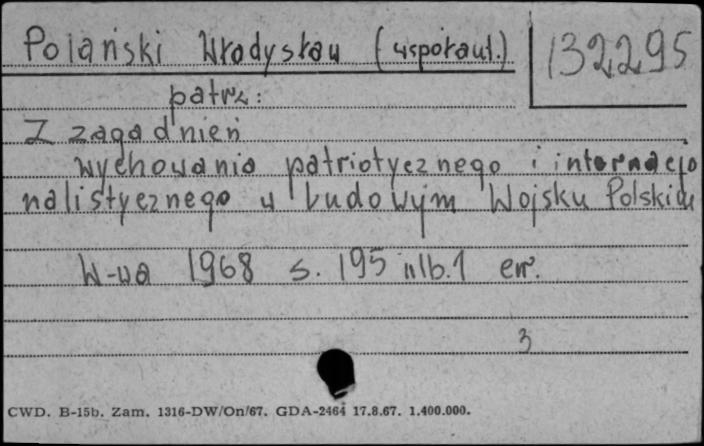 Polański Władysław (współaut.)
132295
patrz:
Z zagadnień
wychowania patriotycznego i internacjo
nalistycznego w Ludowym Wojsku Polskim
W-wa 1968 s. 195 nlb. 1 err.
3
CWD. B-15b. Zam. 1316-DW/On/67. GDA-2464 17.8.67. 1.400.000.